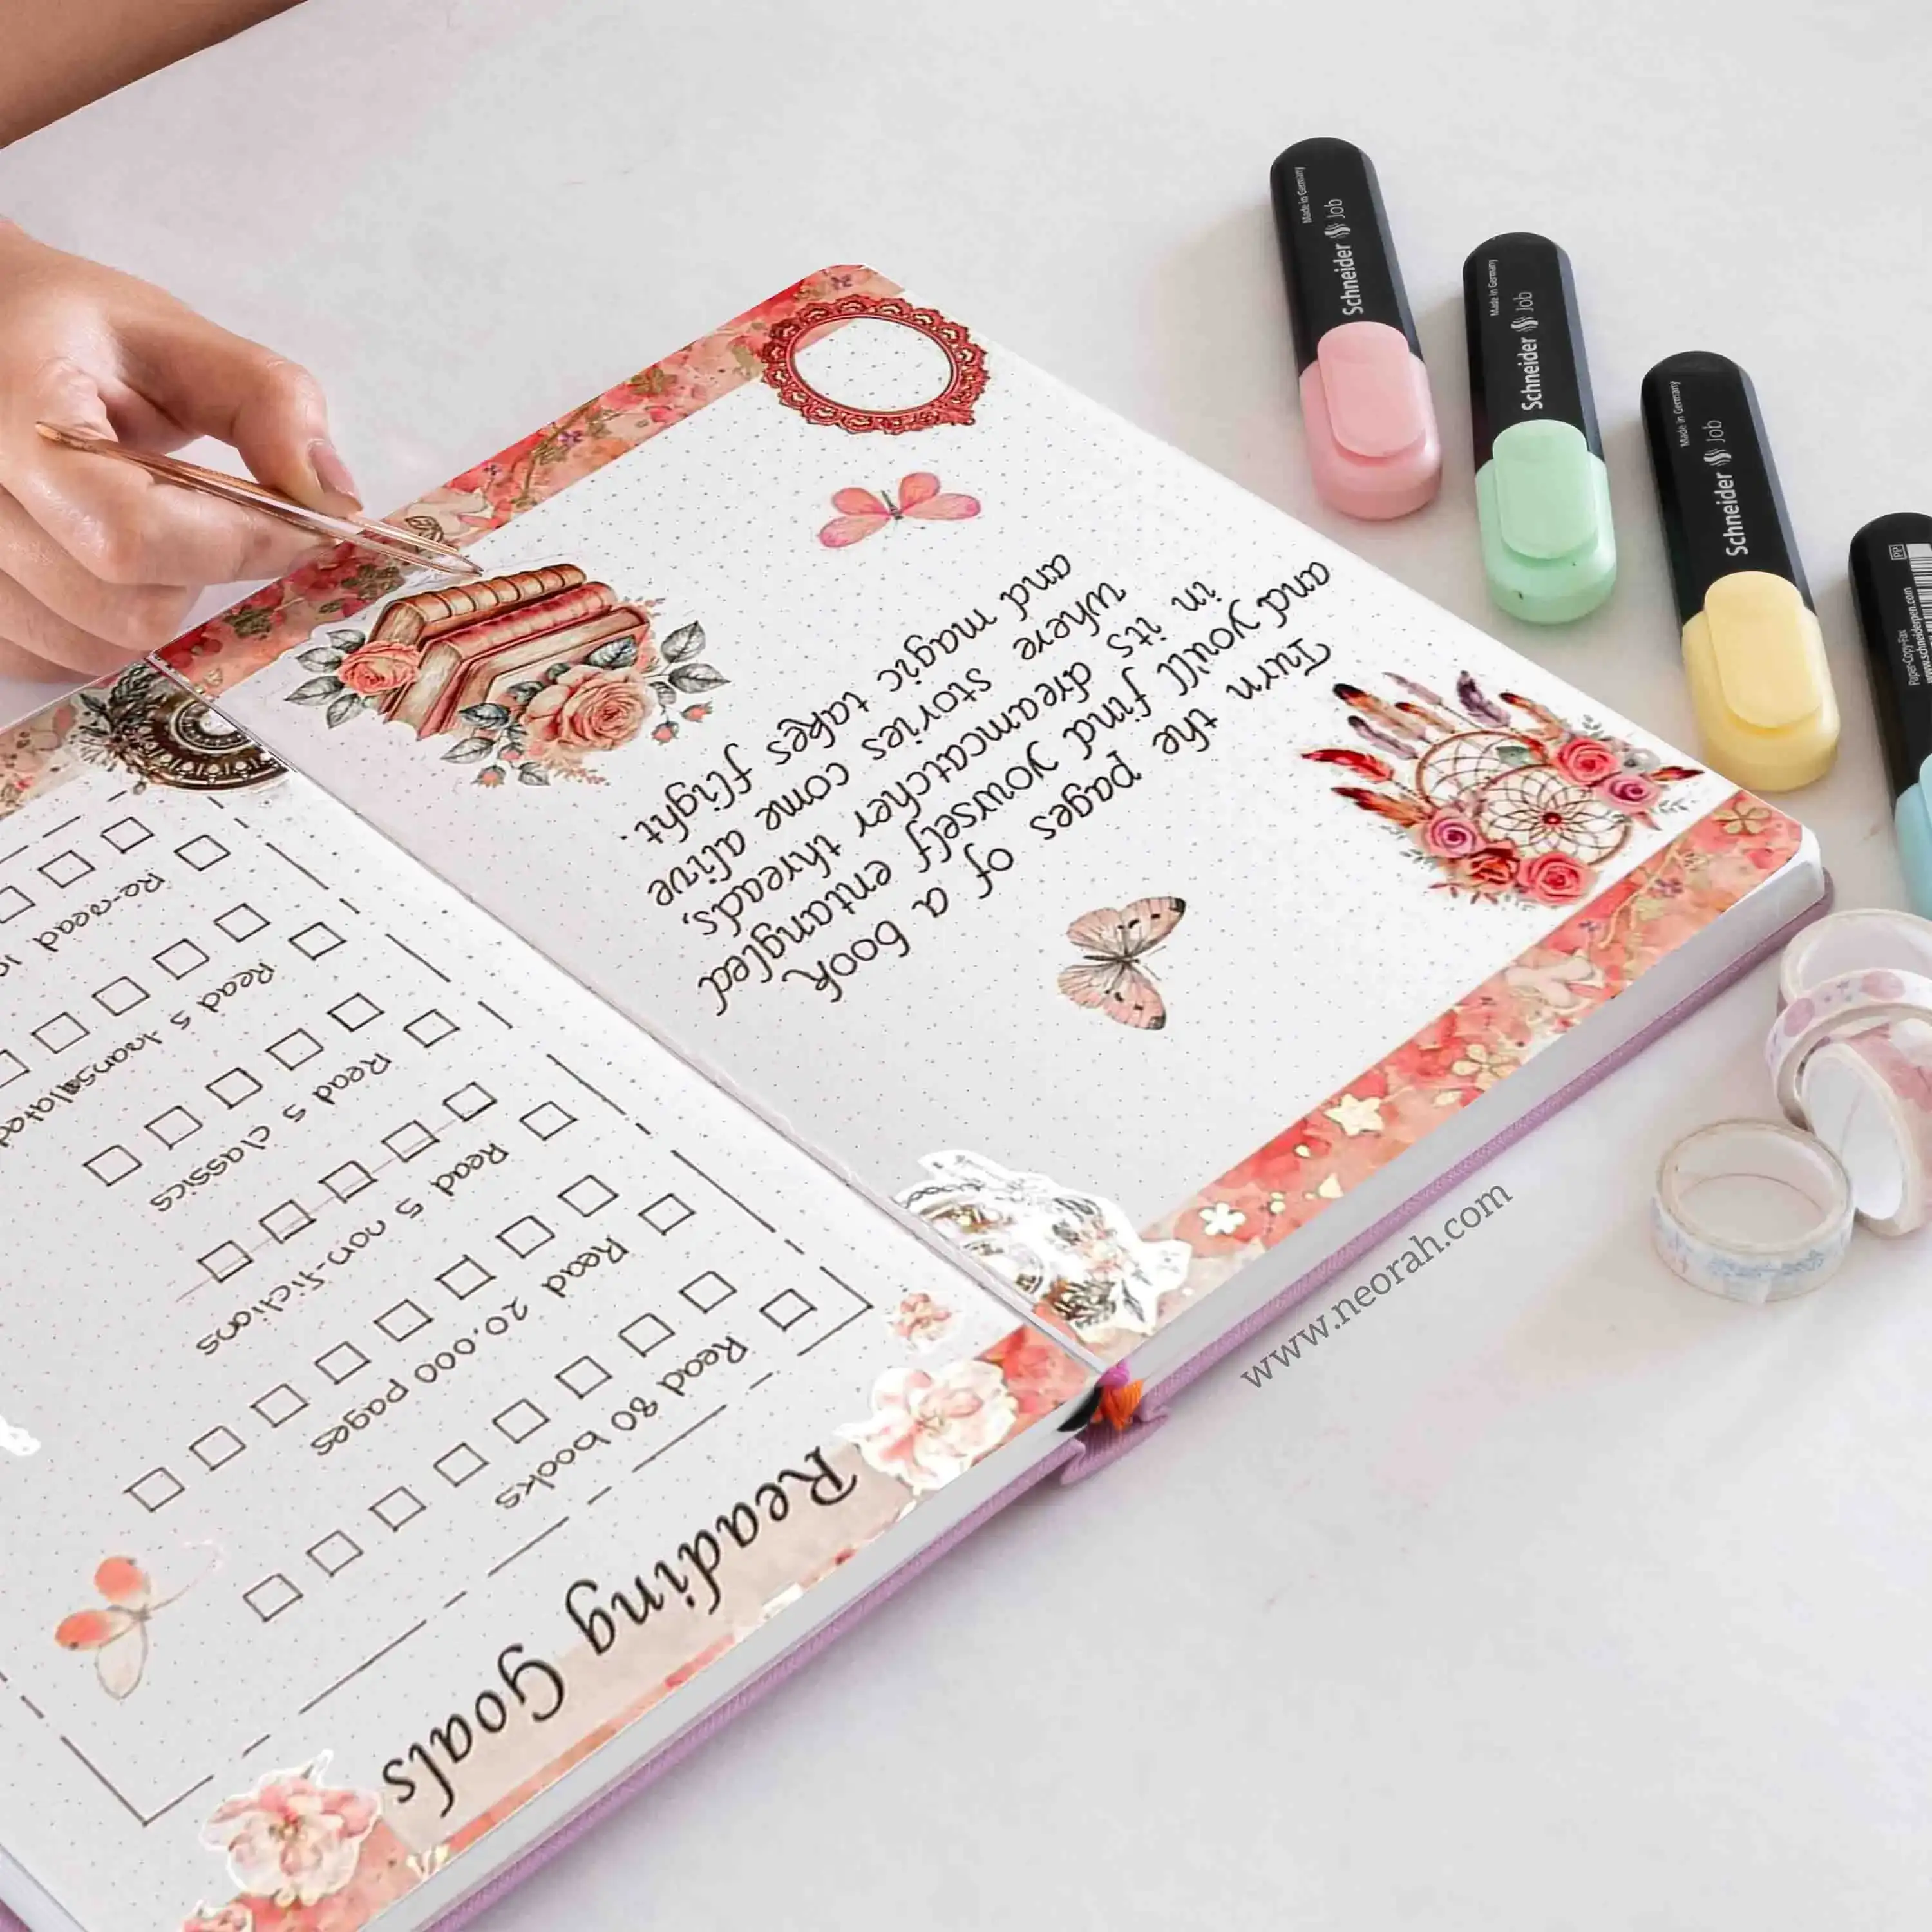 Reading Goals
Read 80 books
Read 20,000 pages
Read 5 non-fictions
Read 5 classics
Read 5 translated
Re-read
Turn the pages of a book
and you'll find yourself entangled
in its dreamcatcher threads,
where stories come alive
and magic takes flight.
Schneider Job
Made in Germany
Schneider Job
Made in Germany
Schneider Job
Made in Germany
PP
Paper-Copy-Fax
www.schneiderpen.com
www.neorah.com